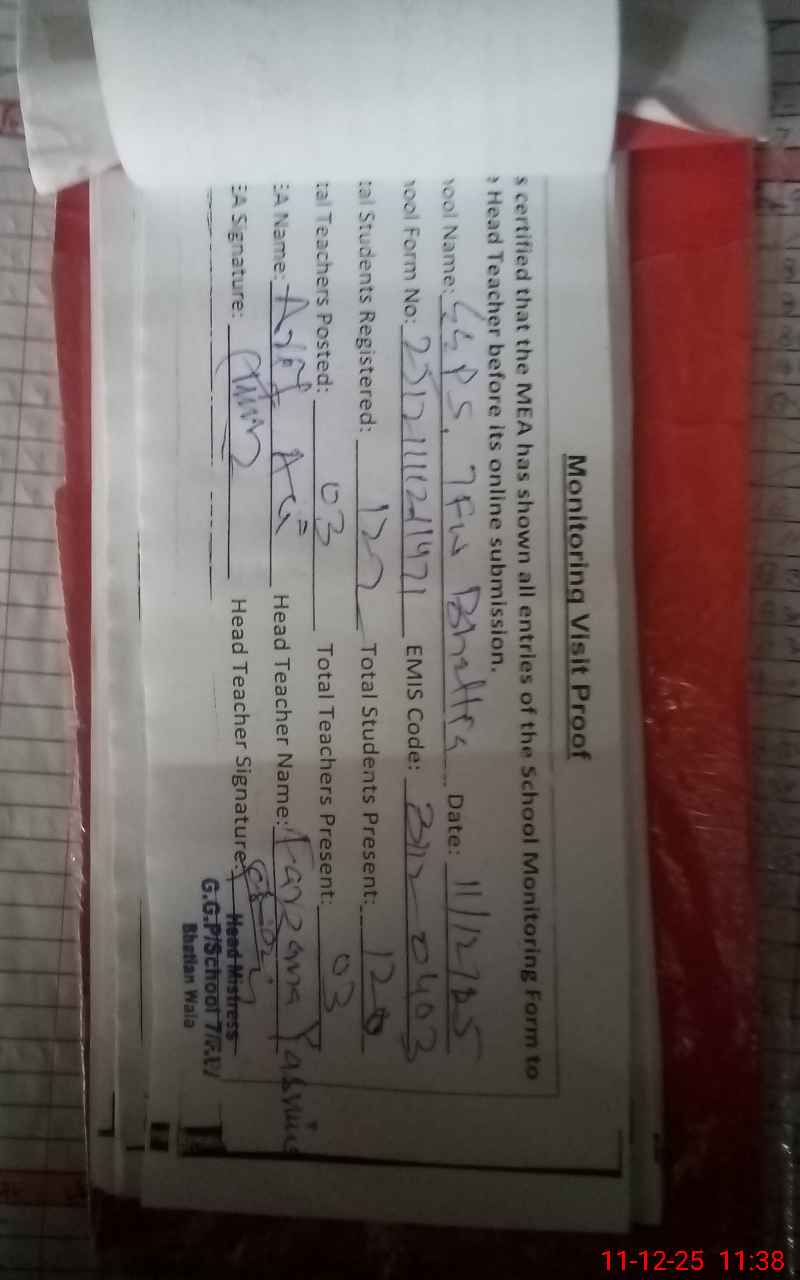 Monitoring Visit Proof
s certified that the MEA has shown all entries of the School Monitoring Form to
Head Teacher before its online submission.
ool Name: GGPS, 7FW Bhatta Date: 11/12/25
ool Form No: EMIS Code: 0403
tal Students Registered: 122 Total Students Present: 120
tal Teachers Posted: 03 Total Teachers Present: 03
EA Name: Head Teacher Name: Farzana Yasmin
EA Signature: Head Teacher Signature:
Head Mistress
G.G.P/School 7/F.W
Bhattan Wala
11-12-25 11:38